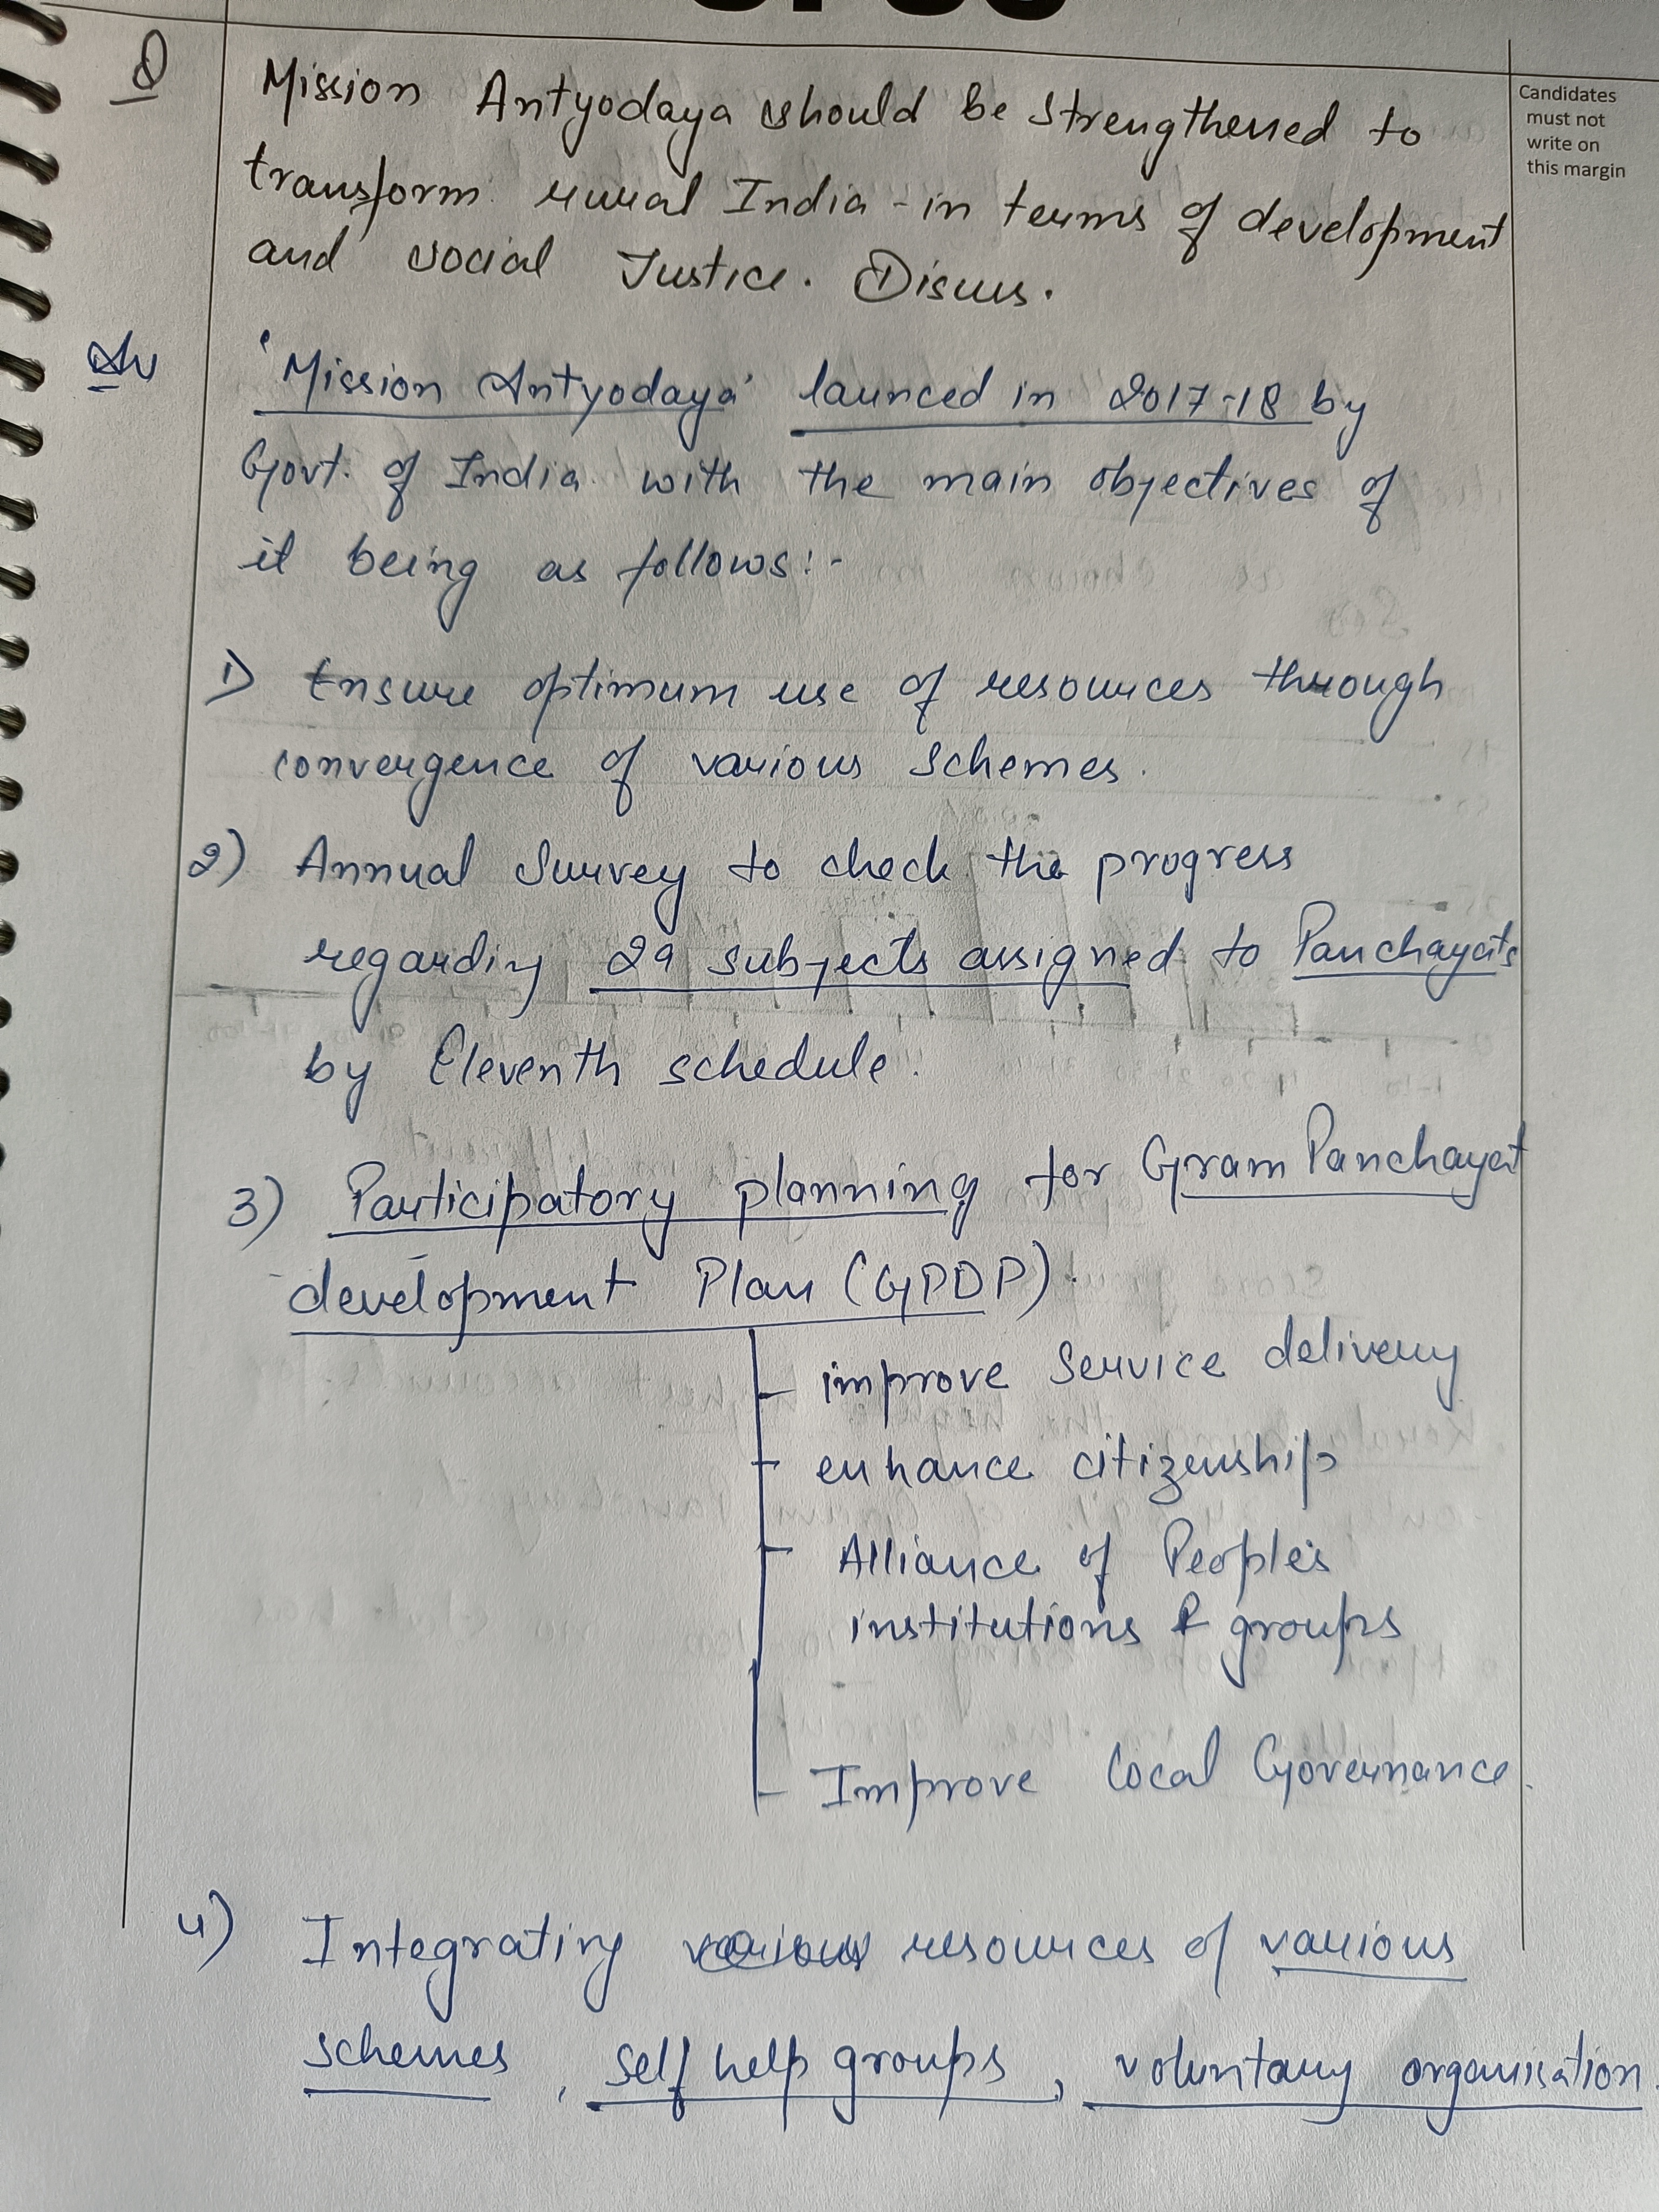 Candidates
must not
write on
this margin
Q
Mission Antyodaya should be strengthened to
transform rural India - in terms of development
and social Justice. Discuss.
Ans
'Mission Antyodaya' launced in 2017-18 by
Govt. of India with the main objectives of
it being as follows:-
1) Ensure optimum use of resources through
convergence of various schemes.
2) Annual Survey to check the progress
regarding 29 subjects assigned to Panchayats
by Eleventh schedule.
3) Participatory planning for Gram Panchayat
development Plan (GPDP).
- improve Service delivery
- enhance citizenship
- Alliance of People's
institutions & groups
- Improve Local Governance.
4) Integrating resources of various
schemes, self help groups, voluntary organisation.